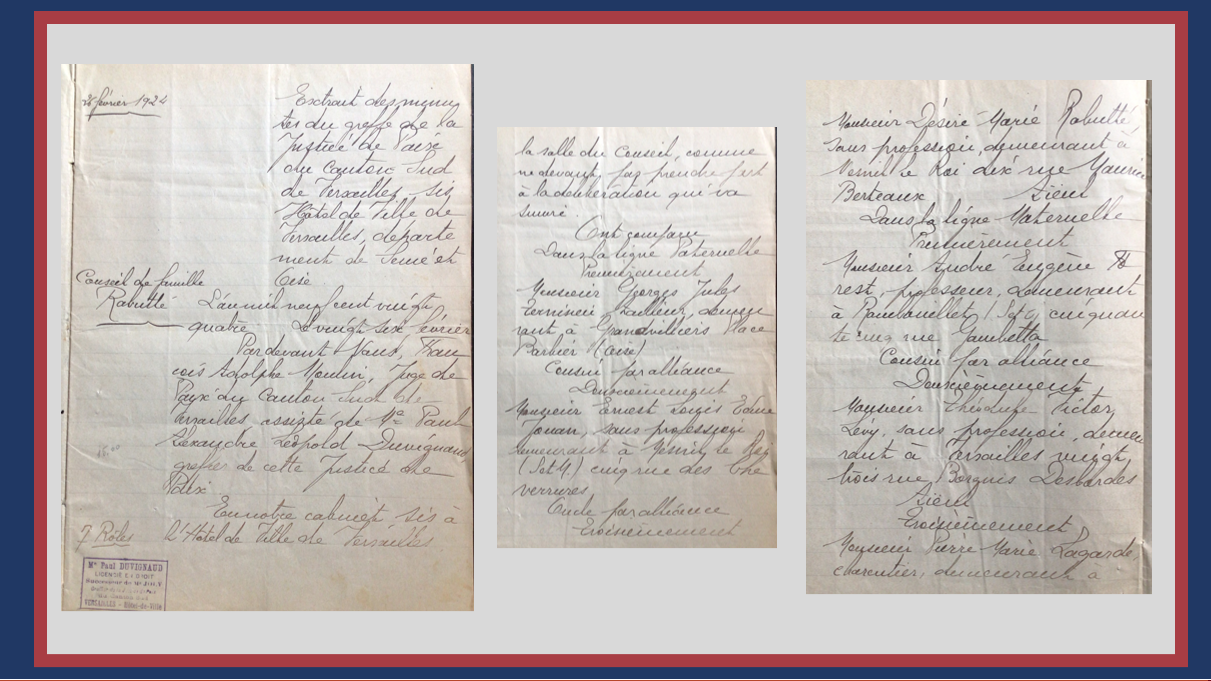 26 février 1924
Extrait des minu
tes du greffe de la
Justice de Paix
du Canton Sud
de Versailles, sis
Hôtel de Ville de
Versailles, départe
ment de Seine et
Oise.
Conseil de famille
Rabutté
L'an mil neuf cent vingt
quatre le vingt six février
Par devant Nous, Fran
çois Adolphe Moulin, Juge de
Paix du Canton Sud de
Versailles, assisté de Me Paul
Alexandre Léopold Duvignaud
greffier de cette Justice de
Paix
En notre cabinet, sis à
l'Hôtel de Ville de Versailles
7 Rôles
Me Paul DUVIGNAUD
LICENCIÉ EN DROIT
Successeur de Me JOLY
VERSAILLES - Hôtel-de-Ville
la salle du Conseil, comme
ne devant, pas prendre part
à la délibération qui va
suivre.
Ont comparu
Dans la ligne Paternelle
Premièrement
Monsieur Georges Jules
tailleur, demeu
rant à Grandvilliers Place
Barbier (Oise)
Cousin par alliance
Deuxièmement
Monsieur Ernest Louis Edme
Jouan, sans profession
demeurant à Mesnil le Roi
(S et O.) cinq rue des
Oncle par alliance
Troisièmement
Monsieur Désiré Marie Rabutté,
sans profession, demeurant à
Mesnil le Roi dix rue Maurice
Berteaux Aïeul
Dans la ligne Maternelle
Premièrement
Monsieur André Eugène Fo
rest, professeur, demeurant
à Rambouillet (S et O) cinquan
te cinq rue Gambetta
Cousin par alliance
Deuxièmement
Monsieur Théodule Victor
Lévy, sans profession, demeu
rant à Versailles vingt
trois rue Borgnis Desbordes
Aïeul
Troisièmement
Monsieur Pierre Marie Lagarde,
charcutier, demeurant à